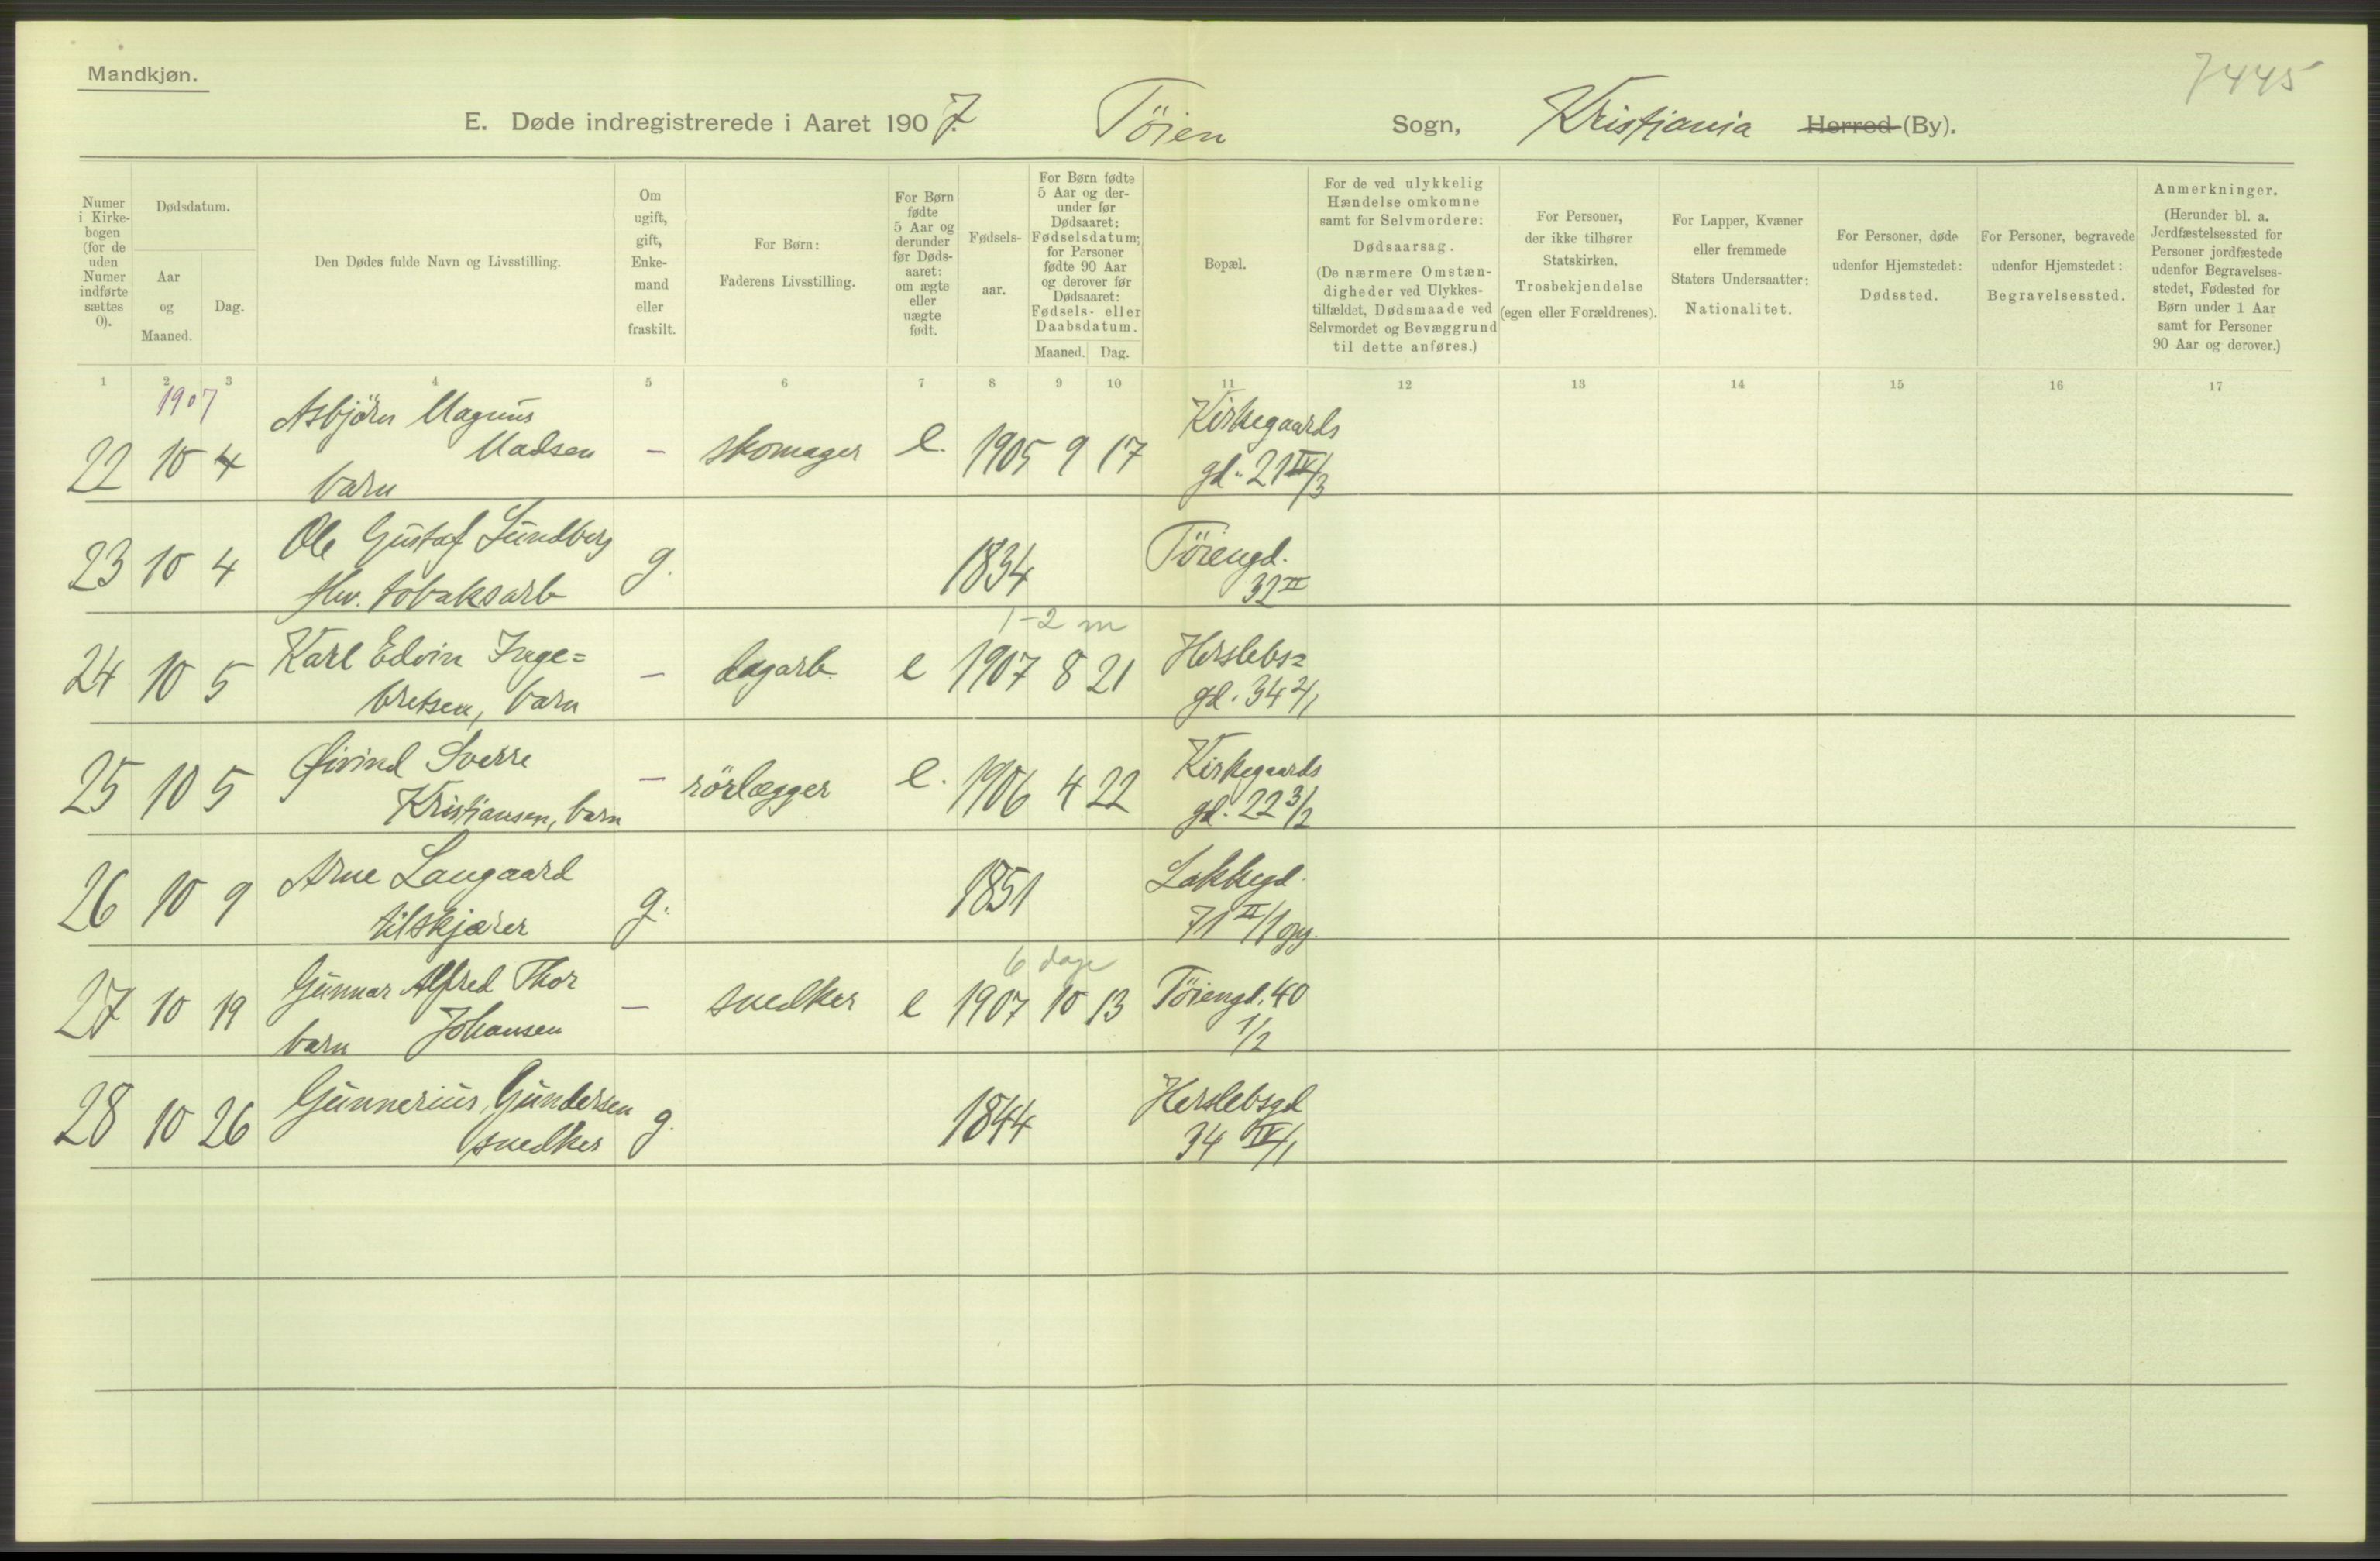 Mandkjøn.
7445
E. Døde indregistrerede i Aaret 1907. Töien Sogn, Kristiania Herred (By).
Numer i Kirkebogen (for de uden Numer indførte sættes 0).
Dødsdatum.
Aar og Maaned.
Dag.
Den Dødes fulde Navn og Livsstilling.
Om ugift, gift, Enkemand eller fraskilt.
For Børn:
Faderens Livsstilling.
For Børn fødte 5 Aar og derunder før Dødsaaret: om ægte eller uægte født.
Fødselsaar.
For Børn fødte 5 Aar og derunder før Dødsaaret: Fødselsdatum; for Personer fødte 90 Aar og derover før Dødsaaret: Fødsels- eller Daabsdatum.
Maaned. Dag.
Bopæl.
For de ved ulykkelig Hændelse omkomne samt for Selvmordere:
Dødsaarsag.
(De nærmere Omstændigheder ved Ulykkestilfældet, Dødsmaade ved Selvmordet og Bevæggrund til dette anføres.)
For Personer, der ikke tilhører Statskirken,
Trosbekjendelse
(egen eller Forældrenes).
For Lapper, Kvæner eller fremmede Staters Undersaatter:
Nationalitet.
For Personer, døde udenfor Hjemstedet:
Dødssted.
For Personer, begravede udenfor Hjemstedet:
Begravelsessted.
Anmerkninger.
(Herunder bl. a. Jordfæstelsessted for Personer jordfæstede udenfor Begravelsesstedet, Fødested for Børn under 1 Aar samt for Personer 90 Aar og derover.)
1 2 3 4 5 6 7 8 9 10 11 12 13 14 15 16 17
1907
22 10 4 Asbjörn Magnus Madsen barn – skomager e. 1905 9 17 Kirkegaards gd. 21 IV/3
23 10 4 Ole Gustaf Lundberg fhv. tobaksarb g. 1834 Töiengd. 32 II
1-2 m
24 10 5 Karl Edvin Inge= bretsen, barn – dagarb. e 1907 8 21 Herslebs= gd. 34 2/1
25 10 5 Øivind Sverre Kristiansen, barn – rörlægger e. 1906 4 22 Kirkegaards gd. 22 3/2
26 10 9 Arne Langaard tilskjærer g. 1851 Lakkegd. 71 II/1 opg.
6 dage
27 10 19 Gunnar Alfred Thor Johansen barn – snedker e 1907 10 13 Töiengd. 40 1/2
28 10 26 Gunnerius Gundersen snedker g. 1844 Herslebsgd 34 IV/1